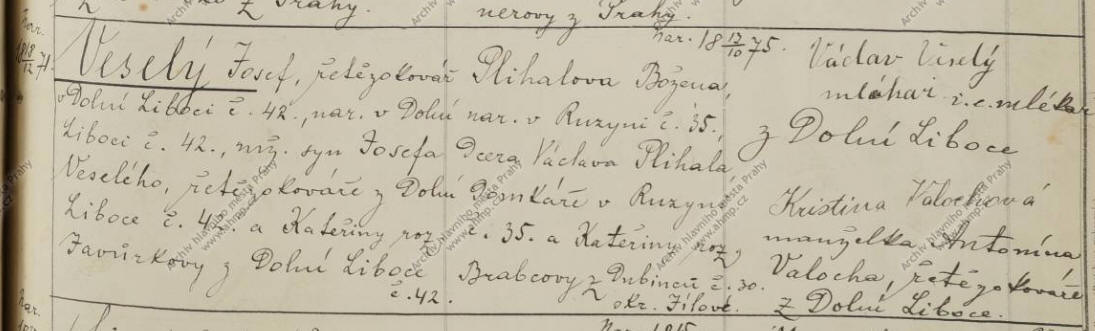 z Prahy.
nerovy z Prahy.
nar.
18 18/12 71.
Veselý Josef, řetězokovář
v Dolní Liboci č. 42., nar. v Dolní
Liboci č. 42., mž. syn Josefa
Veselého, řetězokováře z Dolní
Liboce č. 42. a Kateřiny roz.
Javůrkovy z Dolní Liboce
č. 42.
nar. 18 17/10 75.
Plihalova Božena,
nar. v Ruzyni č. 35.,
dcera Václava Plihala,
Domkáře v Ruzyni
č. 35. a Kateřiny roz.
Brabcovy z Dubincú č. 30.
okr. Jílové.
Václav Veselý
mléhař i.e. mlékař
z Dolní Liboce
Kristina Valochová
manželka Antonína
Valocha, řetězokováře
z Dolní Liboce.
nar.
Archiv hlavního města Prahy
www.ahmp.cz